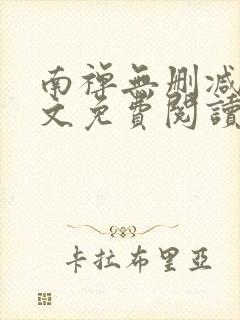 南禅無删減
文免費閱讀
卡拉布里亞